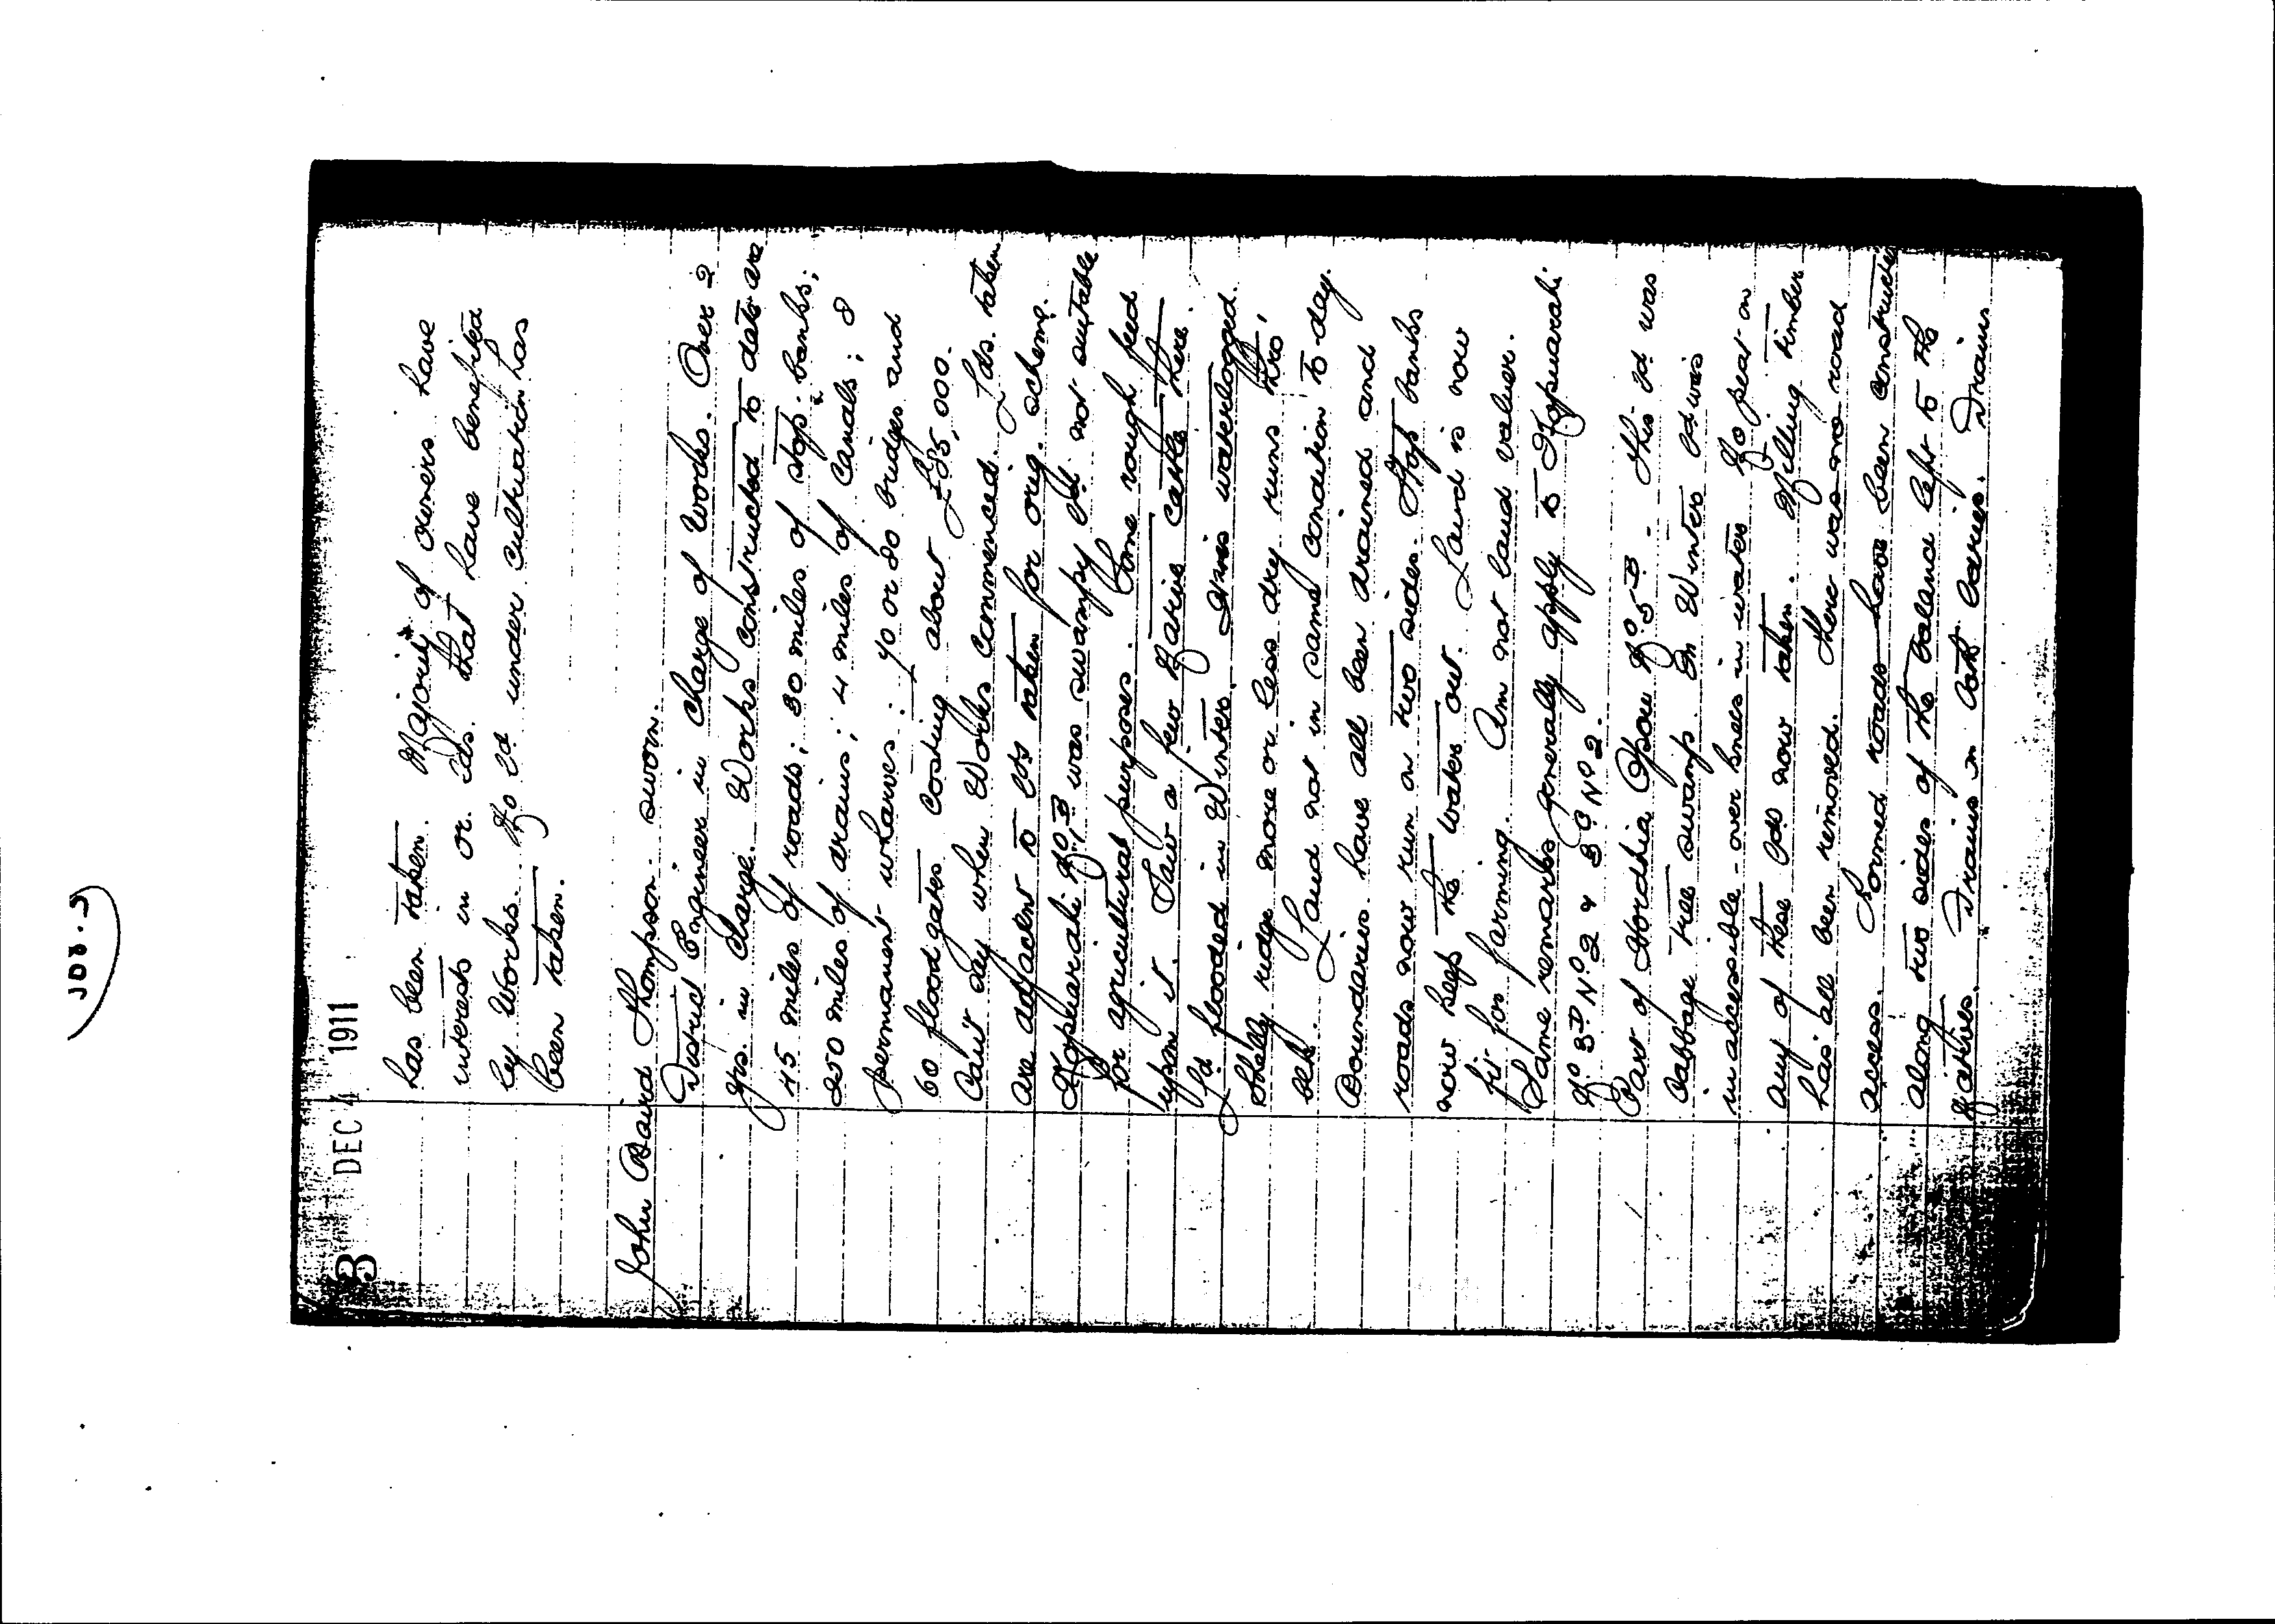 JOU.S
3 DEC 4 1911
has been taken. Majority of owners have
interests in or. lds. that have benefited
by Works. No ld under cultivation has
been taken.
John Baird Thompson. sworn.
District Engineer in Charge of Works. Over 2
yrs. in charge. Works constructed to date are
45 miles of roads; 30 miles of stop-banks;
250 miles of drains; 4 miles of Canals; 8
permanent wharves; 70 or 80 bridges and
60 flood gates costing about £85,000.
Cant say when Works commenced. Lds. taken
are adjacent to lds taken for orig. scheme.
Hopuaraki No 1B was swampy ld not suitable
for agricultural purposes. Some rough feed
upon it. Saw a few Native Cattle there.
Ld flooded in Winter. Was waterlogged.
Shelly ridge more or less dry runs thro'
blk. Land not in same condition to day.
Boundaries have all been drained and
roads now run on two sides. Stop banks
now keep the water out. Land is now
fit for farming. Am not land valuer.
Same remarks generally apply to Hopuaraki
No 3D No 2 & 3C No 2.
Part of Horahia Opou No 5B. This ld was
Cabbage tree swamp. In Winter ld was
inaccessible - over knees in water No peat on
any of these lds now taken. Milling timber
has all been removed. There was no road
access. Formed roads have been constructed
along two sides of the balance left to the
Natives. Drains on both bdaries. Drains